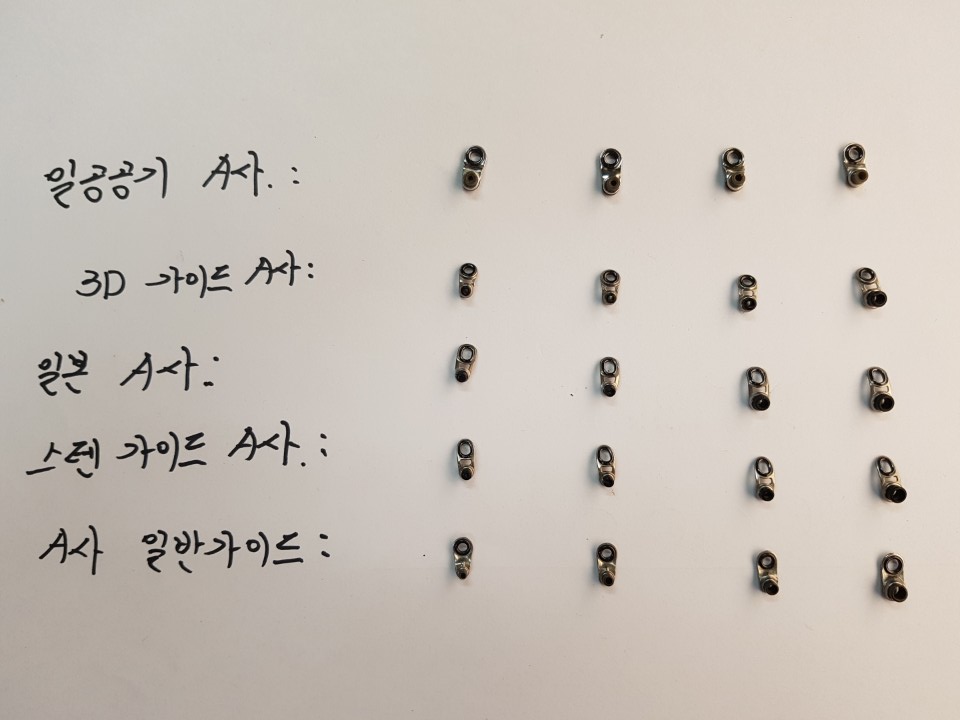 일공공기 A사. :
3D 가이드 A사:
일본 A사.:
스텐 가이드 A사. :
A사 일반가이드 :